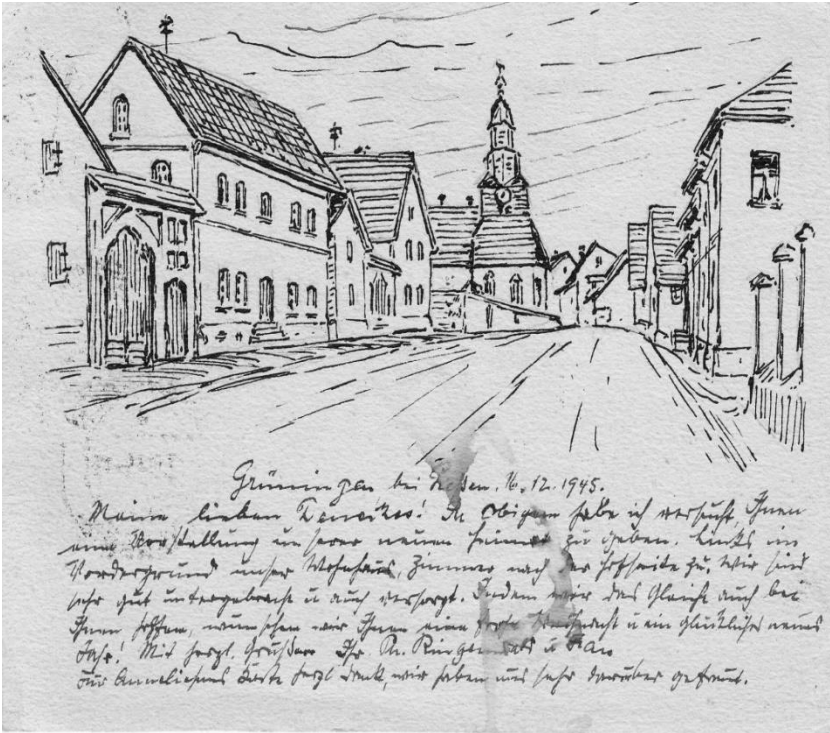 Grüningen bei Gießen. 16.12.1945.
Meine lieben Im Obigen habe ich versucht, Ihnen
eine Vorstellung unserer neuen Heimat zu geben. Links im
Vordergrund unser Wohnhaus, Zimmer nach der Hofseite zu. Wir sind
sehr gut untergebracht u auch versorgt. Indem wir das Gleiche auch bei
Ihnen hoffen, wünschen wir Ihnen eine Weihnacht u ein glückliches neues
Jahr! Mit herzl. Grüßen Ihr u Frau
Für Anneliesens Karte herzl Dank, wir haben uns sehr darüber gefreut.